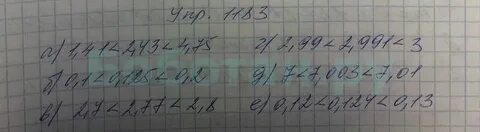 Упр. 1183
а) 1,41 < 2,43 < 2,75 г) 2,99 < 2,991 < 3
б) 0,1 < 0,125 < 0,2 д) 7 < 7,003 < 7,01
в) 2,7 < 2,77 < 2,8 е) 0,12 < 0,124 < 0,13